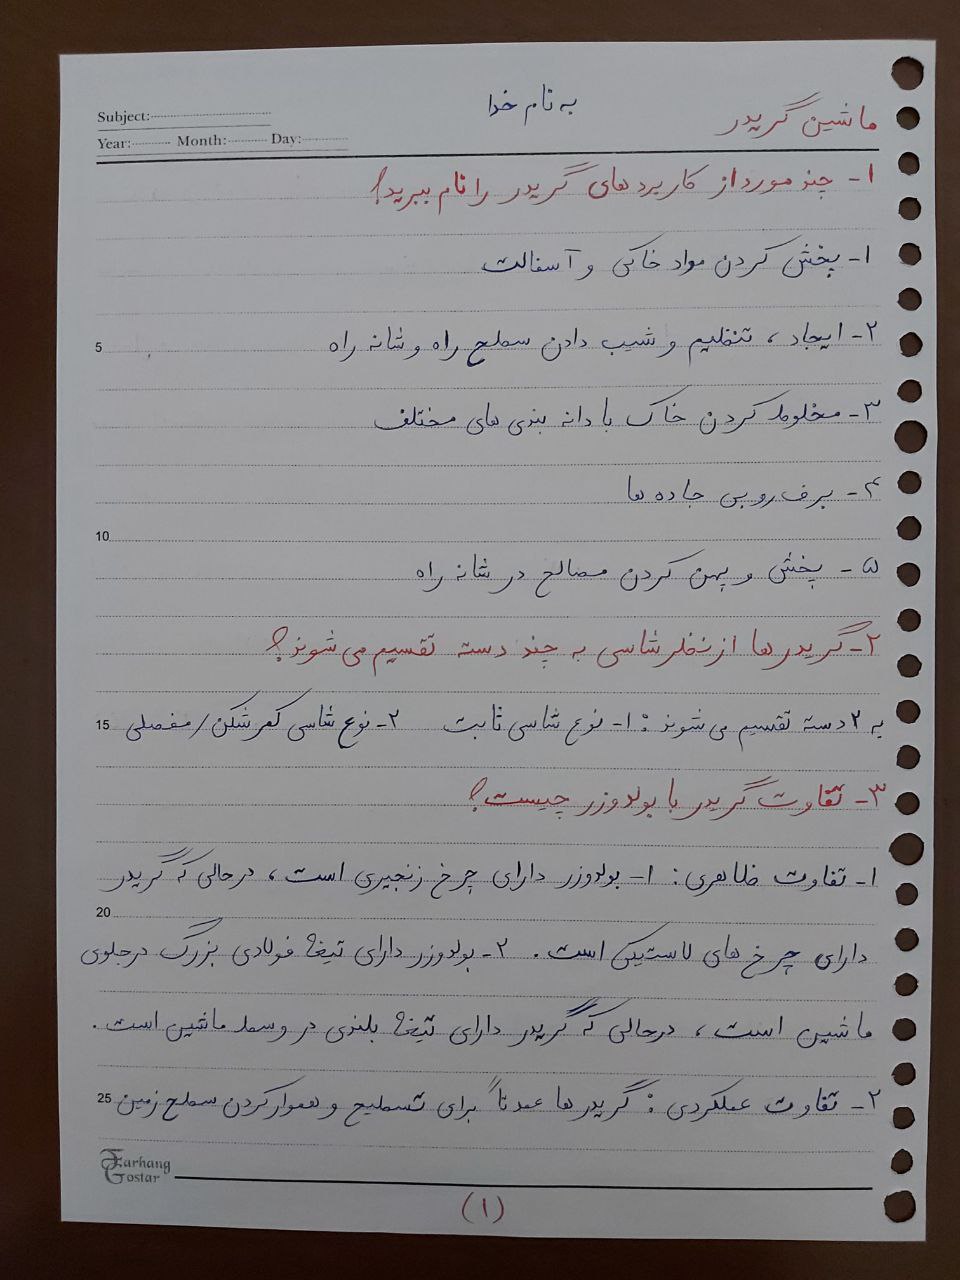 به نام خدا
ماشین گریدر
Subject:
Year: Month: Day:
۱- چند مورد از کاربردهای گریدر را نام ببرید؟
۱- پخش کردن مواد خاکی و آسفالت
5
۲- ایجاد ، تنظیم و شیب دادن سطح راه و شانه راه
۳- مخلوط کردن خاک با دانه بندی های مختلف
۴- برف روبی جاده ها
10
۵- پخش و پهن کردن مصالح در شانه راه
۲- گریدرها از نظر شاسی به چند دسته تقسیم می شوند؟
به ۲ دسته تقسیم می شوند : ۱- نوع شاسی ثابت ۲- نوع شاسی کمرشکن/مفصلی
15
۳- تفاوت گریدر با بولدوزر چیست؟
۱- تفاوت ظاهری : ۱- بولدوزر دارای چرخ زنجیری است ، درحالی که گریدر
20
دارای چرخ های لاستیکی است . ۲- بولدوزر دارای تیغه فولادی بزرگ درجلوی
ماشین است ، درحالی که گریدر دارای تیغه بلندی در وسط ماشین است .
۲- تفاوت عملکردی : گریدرها عمدتاً برای تسطیح و هموارکردن سطح زمین
25
Farhang
Gostar
(۱)